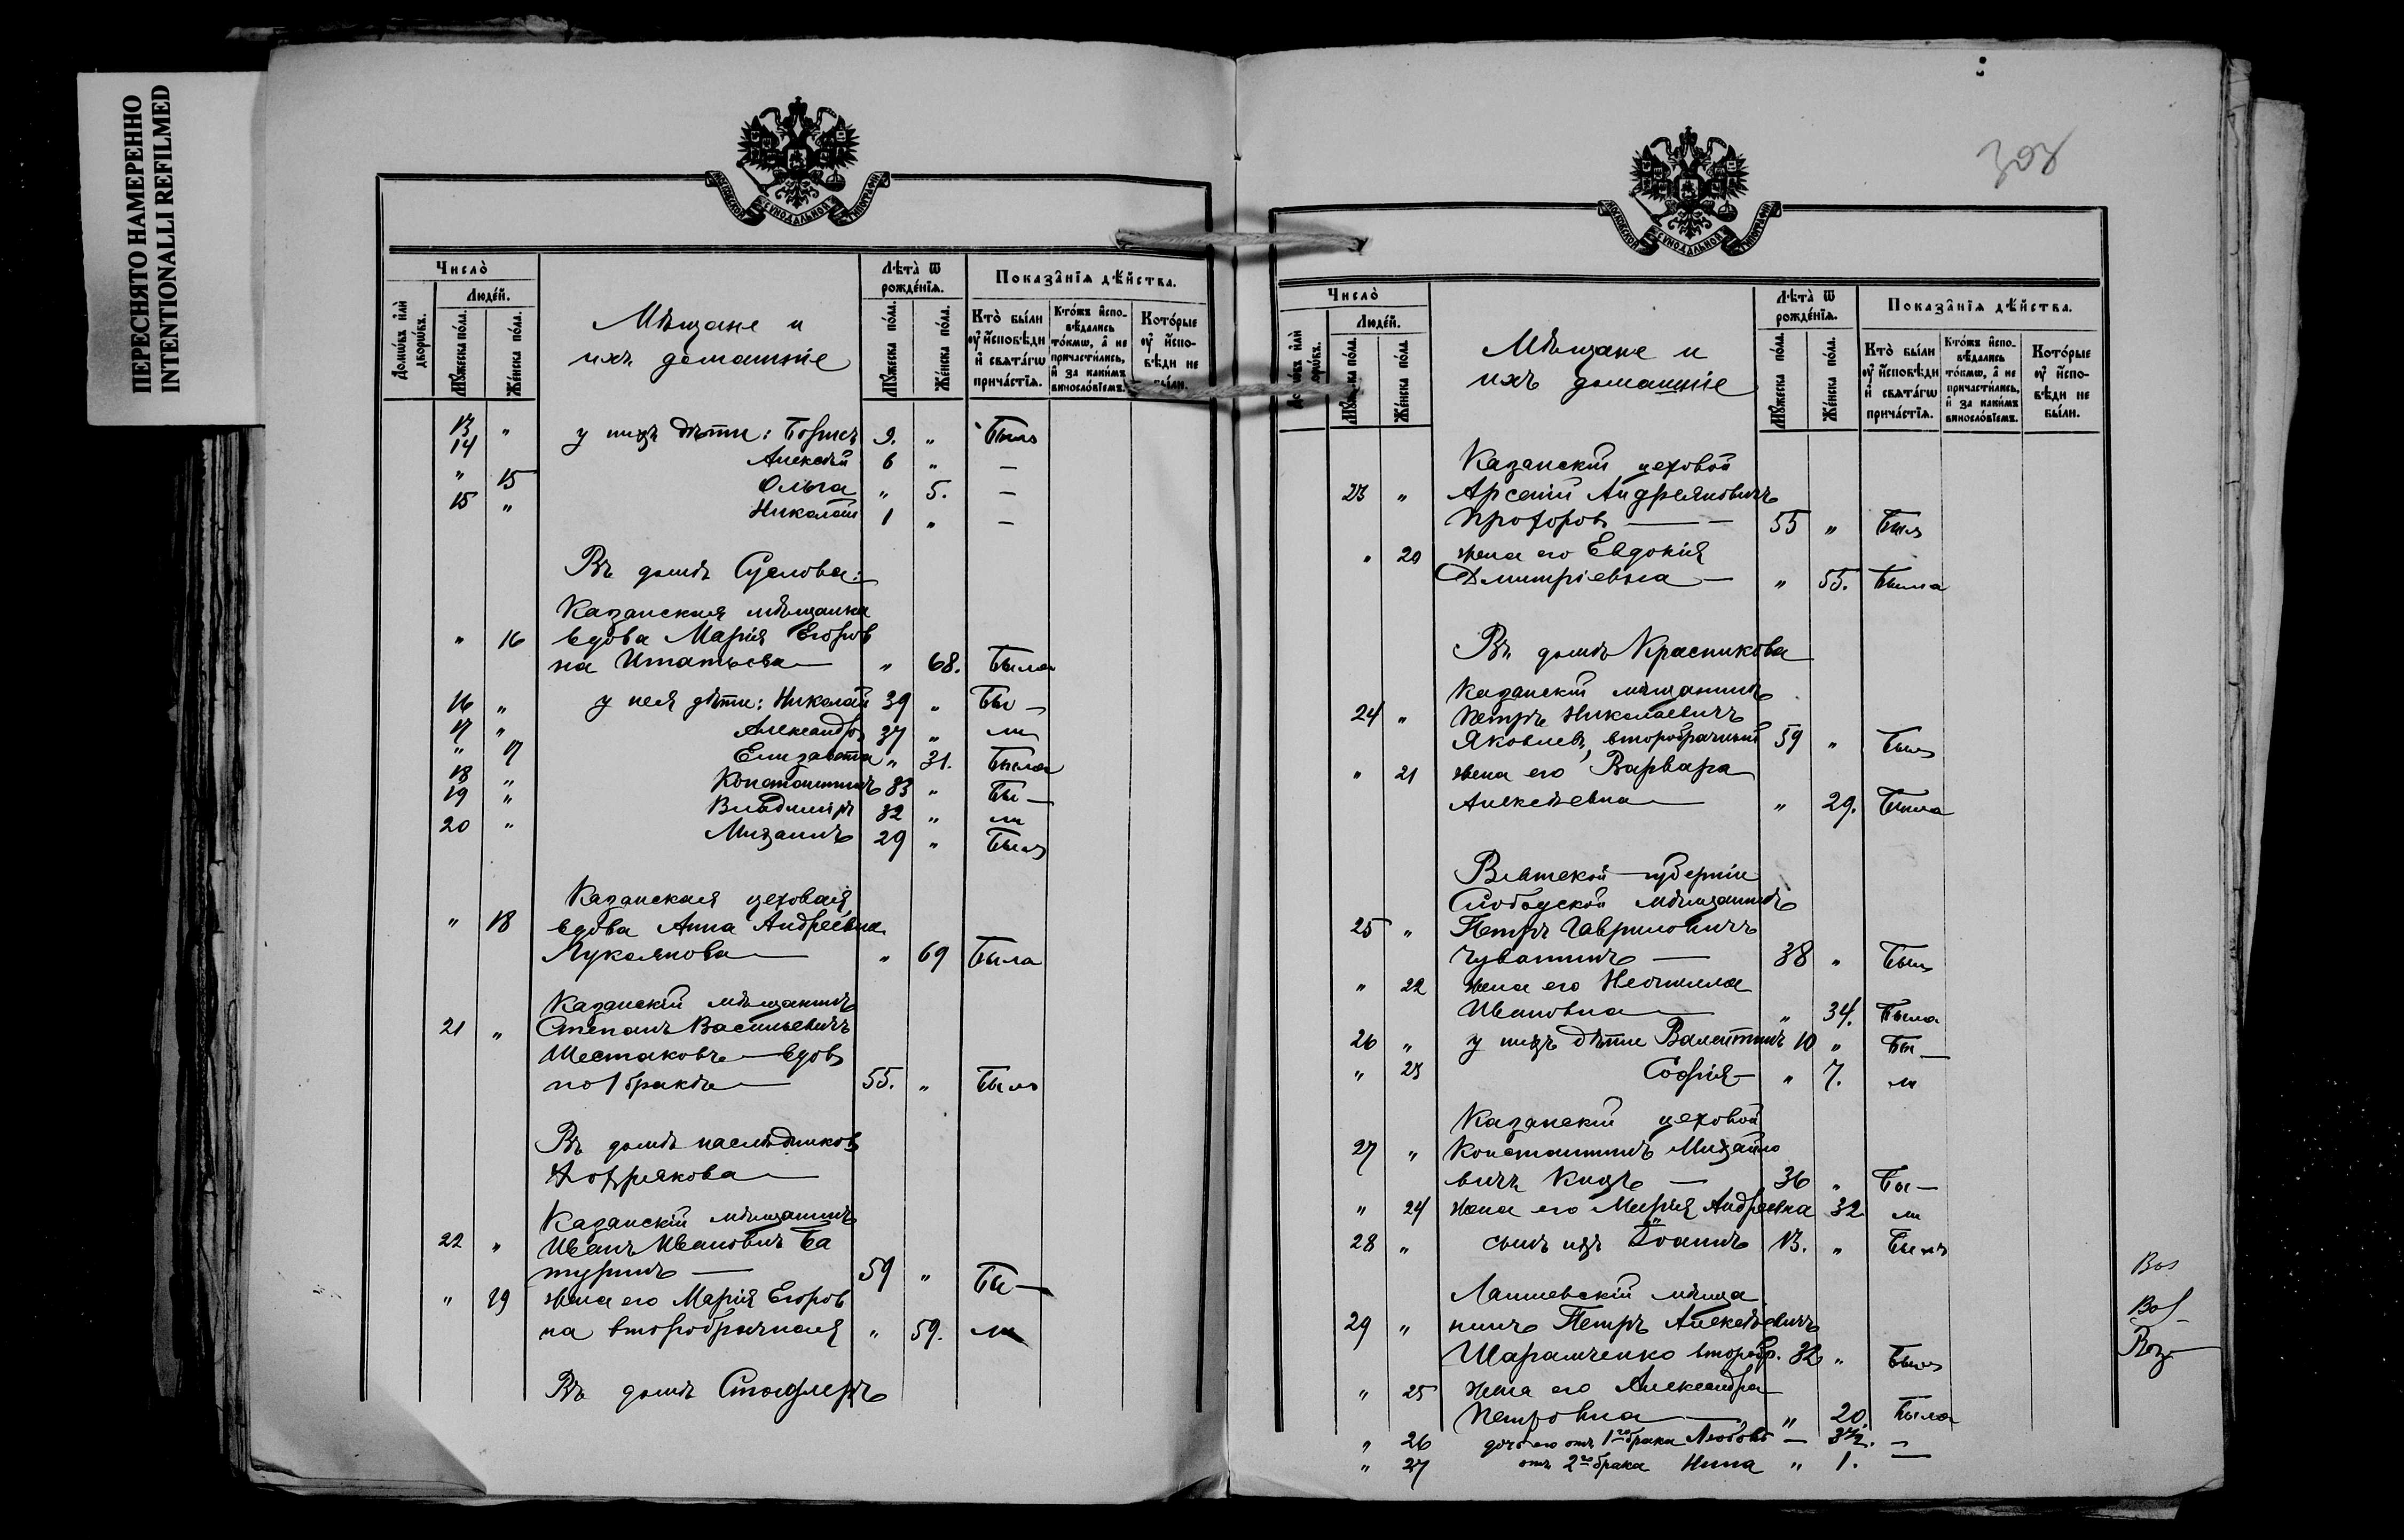 ПЕРЕСНЯТО НАМЕРЕННО
INTENTIONALLI REFILMED
МОСКОВСКОЙ СУНОДАЛЬНОЙ ТИПОГРАФІИ
Число̀
Людéй.
Домѡ́въ и҆лѝ дворѡ́въ.
Мꙋ́жеска по́ла.
Же́нска по́ла.
Мѣщане и
ихъ домашніе
Лѣ́та ѿ рожде́нїѧ.
Мꙋ́жеска по́ла.
Же́нска по́ла.
Показа̑нїѧ дѣ́йства.
Кто̀ бы́ли ᲂу҆ и҆сповѣ́ди и҆ свѧта́гѡ прича́стїѧ.
Кто́жъ и҆спо­вѣ́дались то́кмѡ, а҆ не причасти́лись, и҆ за каки́мъ виносло́вїемъ.
Кото́рые ᲂу҆ и҆спо­вѣ́ди не бы́ли.
13 „ у нихъ дѣти: Борисъ 9. „ Былъ
14 Алексѣй 6 „ —
„ 15 Ольга „ 5. —
15 „ Николай 1 „ —
Въ домѣ Суслова:
Казанская мѣщанка
„ 16 вдова Марія Егоров
на Игнатьева — „ 68. Была
16 „ у нея дѣти: Николай 39 „ Бы —
17 „ Александръ 37 „ ли
„ 17 Елизавета „ 31. Была
18 „ Константинъ 33 „ Бы —
19 „ Владиміръ 32 „ ли
20 „ Михаилъ 29 „ Былъ
Казанская цеховая
„ 18 вдова Анна Андреевна
Лукоянова — „ 69 Была
Казанскій мѣщанинъ
21 „ Степанъ Васильевичъ
Шестаковъ — вдовъ
по 1 бракѣ — 55. „ Былъ
Въ домѣ наслѣдниковъ
Казанскій мѣщанинъ
22 „ Иванъ Ивановичъ Ба
туринъ — 59 „ Бы —
„ 19 жена его Марія Егоров
на второбрачная „ 59. ли
Въ домѣ
303
МОСКОВСКОЙ СУНОДАЛЬНОЙ ТИПОГРАФІИ
Число̀
Людéй.
Домѡ́въ и҆лѝ дворѡ́въ.
Мꙋ́жеска по́ла.
Же́нска по́ла.
Мѣщане и
ихъ домашніе
Лѣ́та ѿ рожде́нїѧ.
Мꙋ́жеска по́ла.
Же́нска по́ла.
Показа̑нїѧ дѣ́йства.
Кто̀ бы́ли ᲂу҆ и҆сповѣ́ди и҆ свѧта́гѡ прича́стїѧ.
Кто́жъ и҆спо­вѣ́дались то́кмѡ, а҆ не причасти́лись, и҆ за каки́мъ виносло́вїемъ.
Кото́рые ᲂу҆ и҆спо­вѣ́ди не бы́ли.
Казанскій цеховой
23 „ Арсеній Андреяновичъ
Прохоровъ — 55 „ Былъ
„ 20 жена его Евдокія
Димитріевна — „ 55. Была
Въ домѣ Красникова
Казанскій мѣщанинъ
24 „ Петръ Николаевичъ
Яковлевъ, второбрачный 59 „ Былъ
„ 21 жена его Варвара
Алексѣевна — „ 29. Была
Вятской губерніи
Слободской мѣщанинъ
25 „ Петръ Гавриловичъ
Чувашинъ — 38 „ Былъ
„ 22 жена его Неонилла
Ивановна — „ 34. Была
26 „ у нихъ дѣти Валентинъ 10 „ Бы —
„ 23 Софія — „ 7. ли
Казанскій цеховой
27 „ Константинъ Михайло
вичъ — 36 „ Бы —
„ 24 жена его Марія Андреевна 32 ли
28 „ сынъ ихъ Іоаннъ 13. „ Былъ
Лаишевскій мѣща
29 „ нинъ Петръ Алексѣевичъ
Шарамченко второбр. 32 „ Былъ
„ 25 жена его Александра
Петровна — „ 20. Была
„ 26 дочь его отъ 1го брака Любовь — 3 1/2. —
„ 27 отъ 2го брака Нина „ 1. —